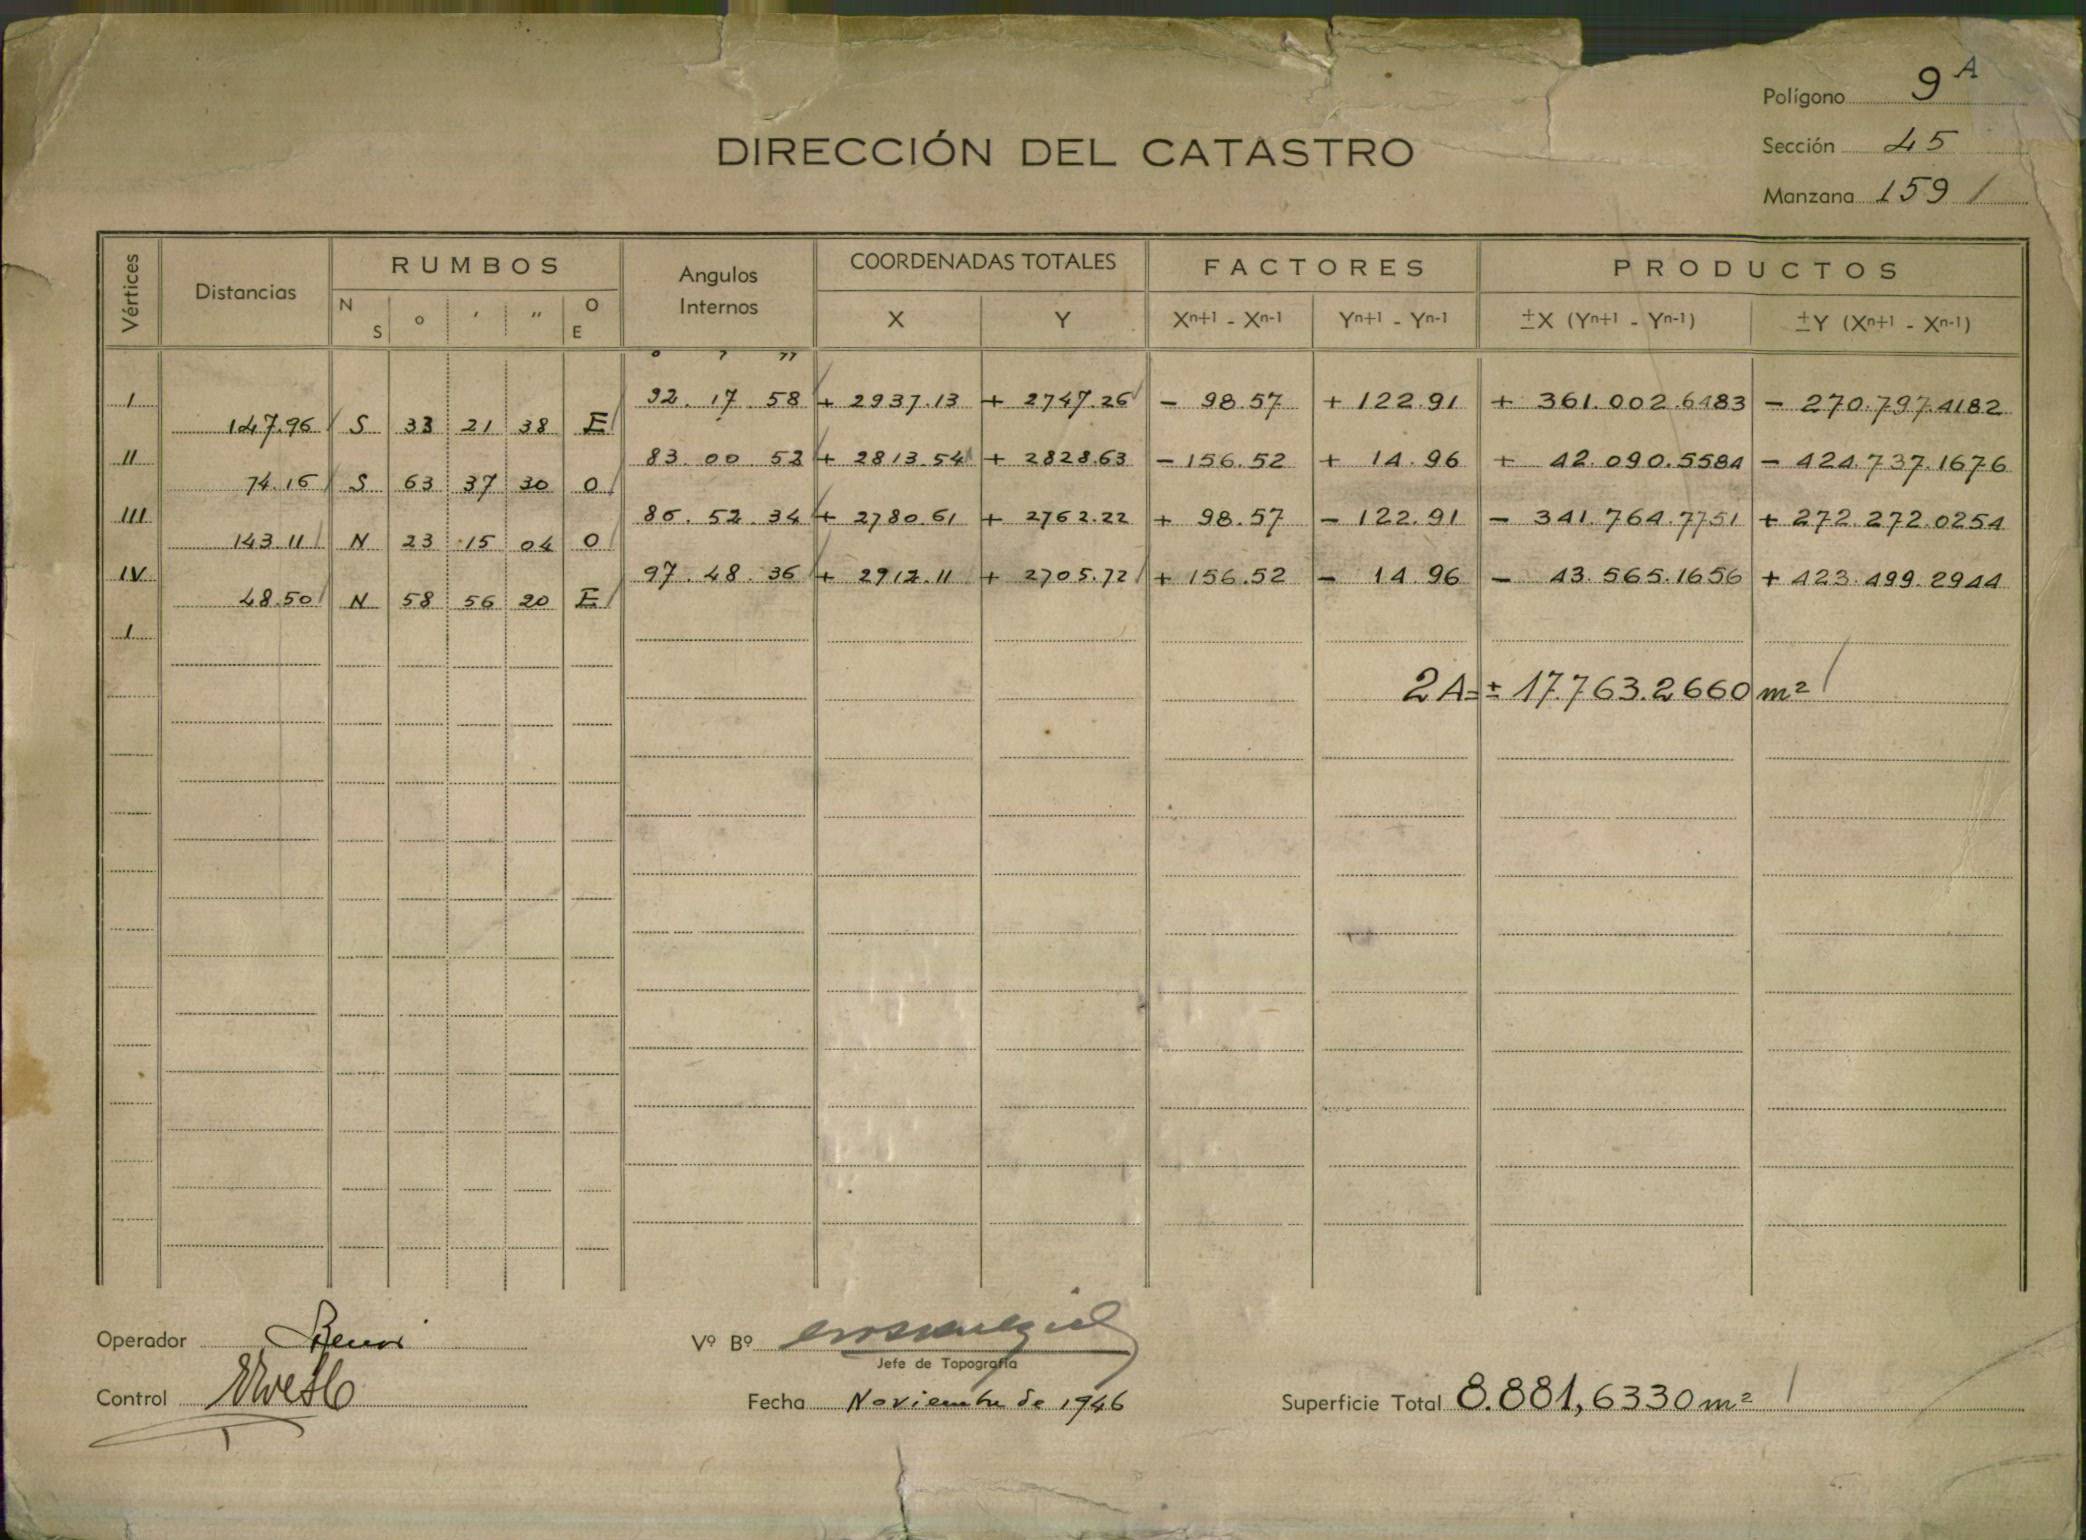 Polígono 9 A
DIRECCIÓN DEL CATASTRO
Sección 45
Manzana 159 /
Vértices Distancias RUMBOS Angulos Internos COORDENADAS TOTALES FACTORES PRODUCTOS
N S o ′ ″ O E X Y Xn+1 - Xn-1 Yn+1 - Yn-1 ±X (Yn+1 - Yn-1) ±Y (Xn+1 - Xn-1)
o ′ ″
I 92. 17. 58 + 2937.13 + 2747.26 - 98.57 + 122.91 + 361.002.6483 - 270.797.4182
147.96 S 33 21 38 E
II 83. 00. 52 + 2813.54 + 2828.63 - 156.52 + 14.96 + 42.090.5584 - 424.737.1676
74.16 S 63 37 30 O
III 86. 52. 34 + 2780.61 + 2762.22 + 98.57 - 122.91 - 341.764.7751 + 272.272.0254
143.11 N 23 15 04 O
IV 97. 48. 36 + 2912.11 + 2705.72 + 156.52 - 14.96 - 43.565.1656 + 423.499.2944
48.50 N 58 56 20 E
I
2A=± 17.763.2660 m²
Operador
Vº Bº
Jefe de Topografía
Control
Fecha Noviembre de 1946
Superficie Total 8.881,6330 m²